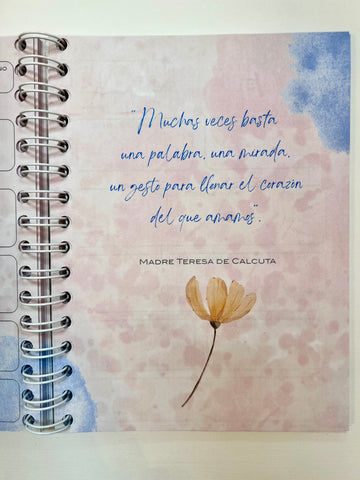 "Muchas veces basta
una palabra, una mirada,
un gesto para llenar el corazón
del que amamos".
MADRE TERESA DE CALCUTA